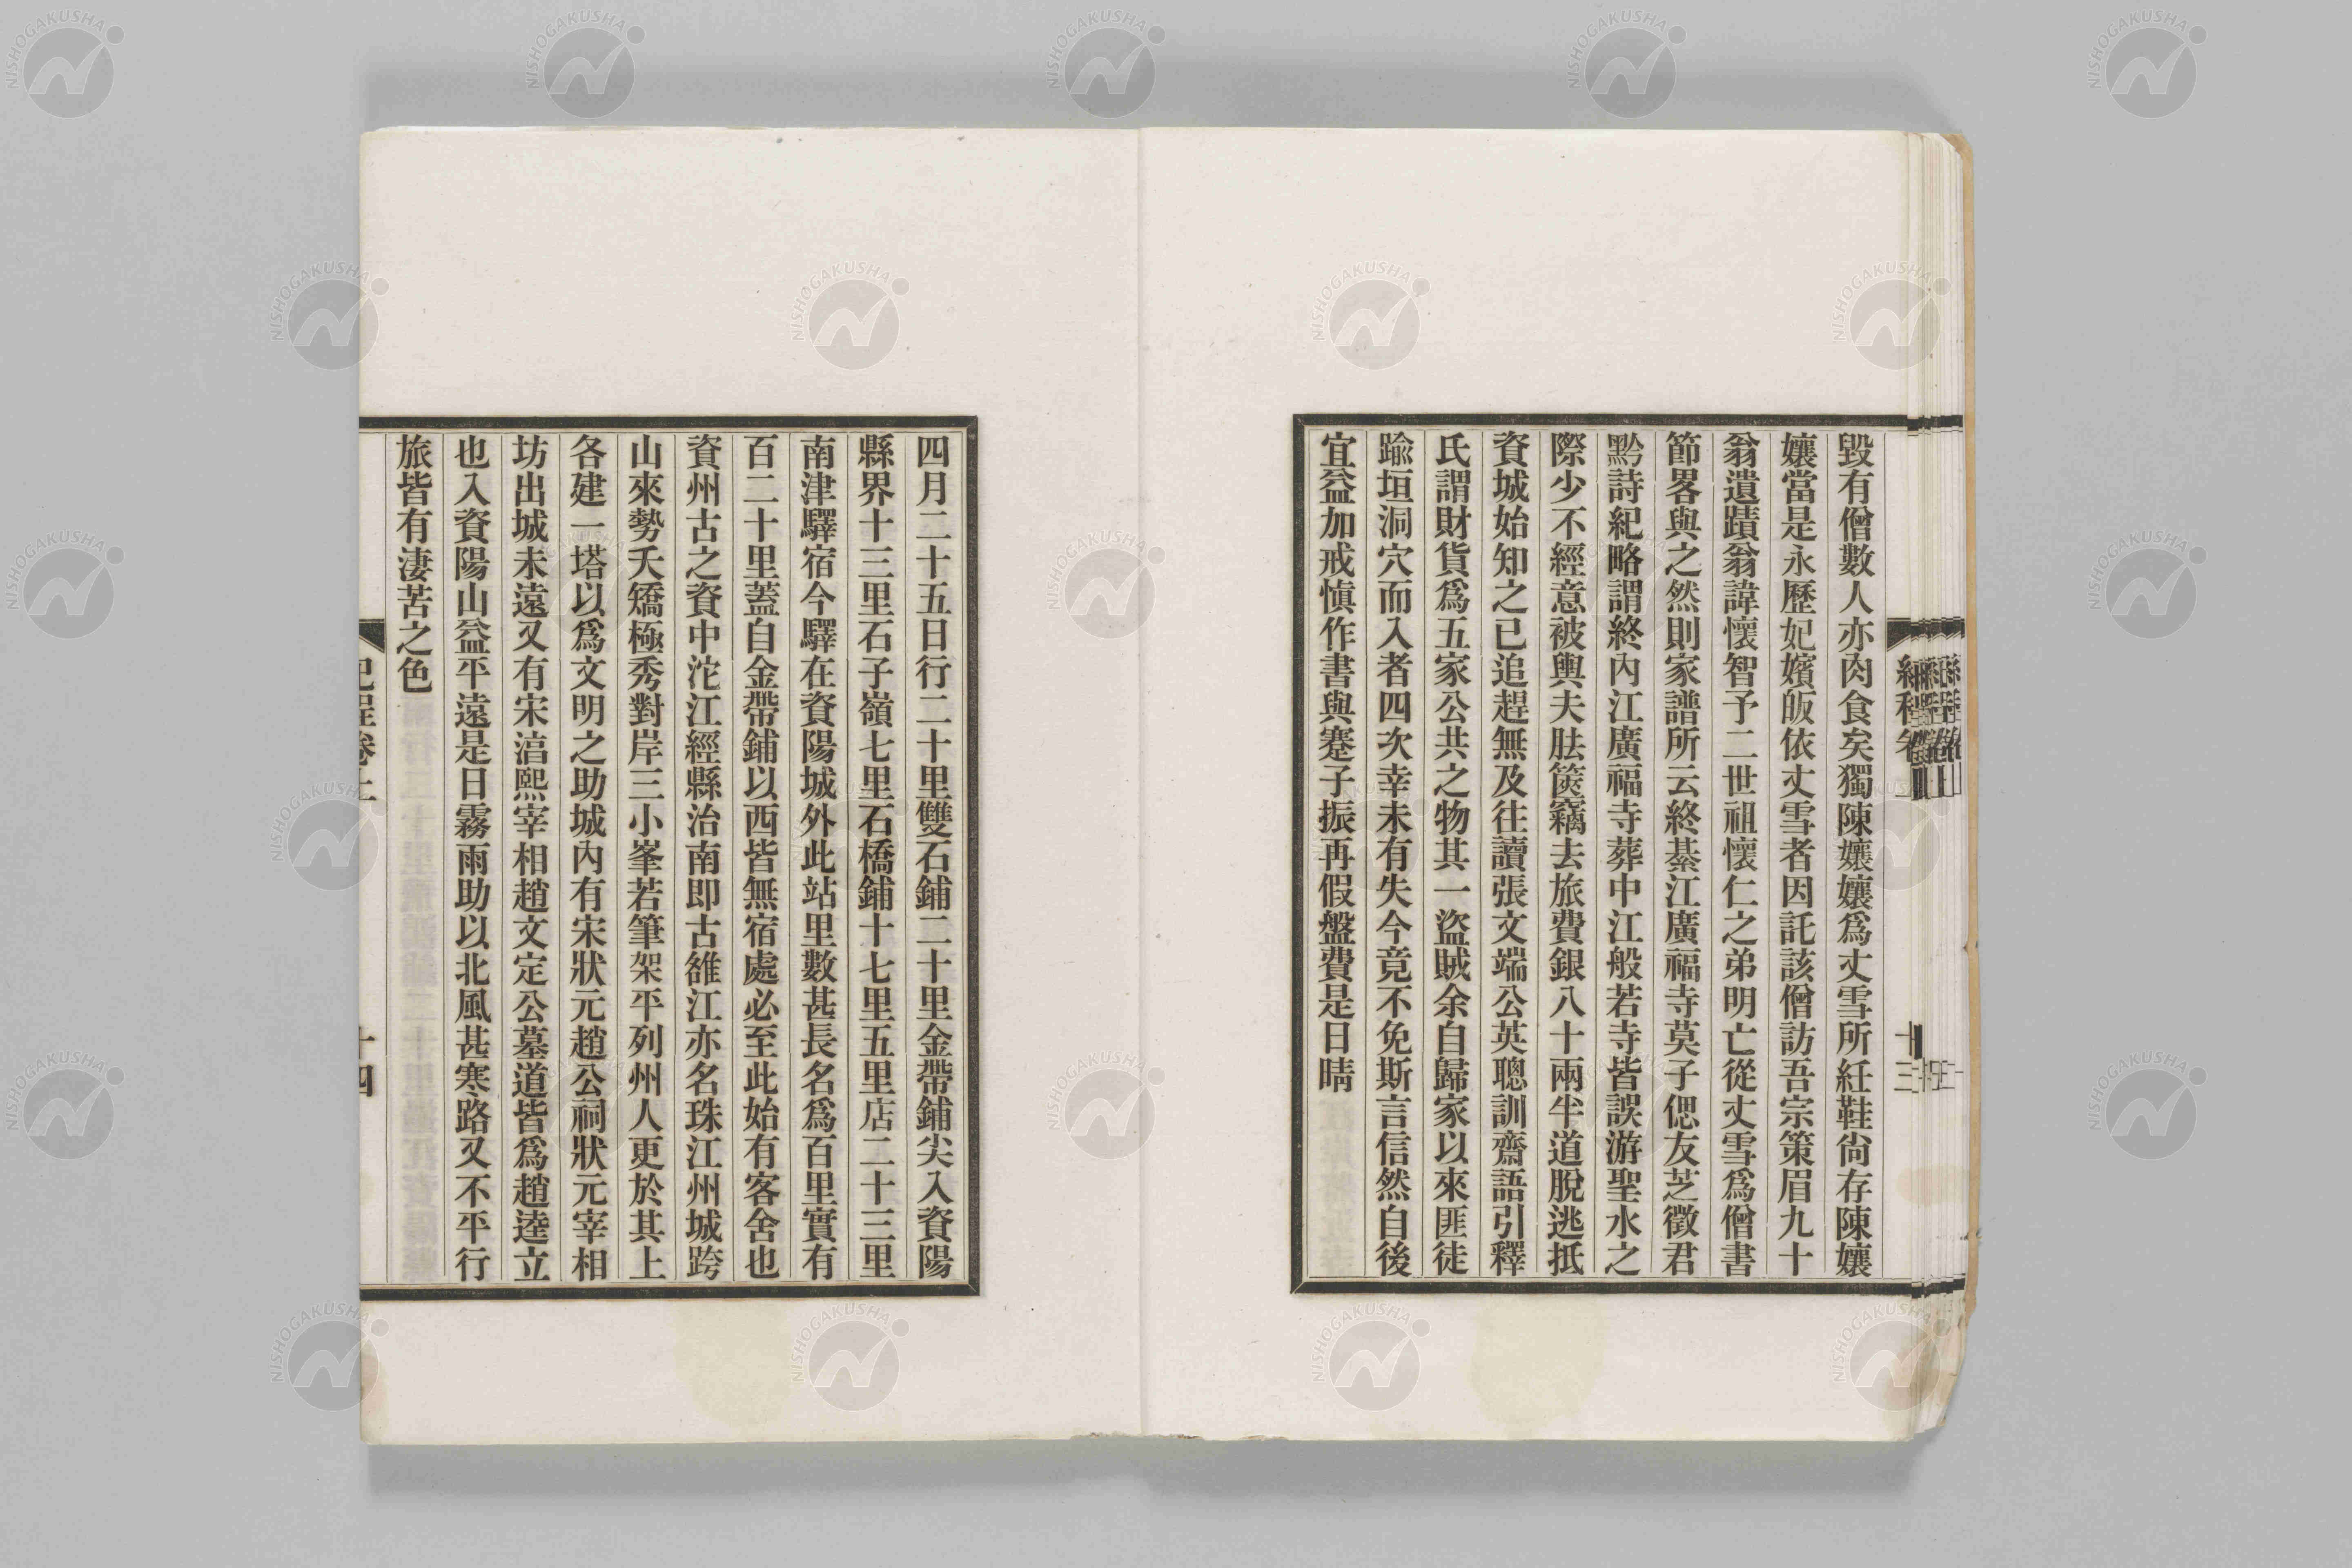 毀有僧數人亦肉食矣獨陳孃孃爲丈雪所紝鞋尙存陳孃
孃當是永歷妃嬪皈依丈雪者因託該僧訪吾宗策眉九十
翁遺蹟翁諱懷智予二世祖懷仁之弟明亡從丈雪爲僧書
節畧與之然則家譜所云終綦江廣福寺莫子偲友芝徵君
黔詩紀略謂終內江廣福寺葬中江般若寺皆誤游聖水之
際少不經意被輿夫胠篋竊去旅費銀八十兩半道脫逃抵
資城始知之已追趕無及往讀張文端公英聰訓齋語引釋
氏謂財貨爲五家公共之物其一盜賊余自歸家以來匪徒
踰垣洞穴而入者四次幸未有失今竟不免斯言信然自後
宜益加戒愼作書與蹇子振再假盤費是日晴
四月二十五日行二十里雙石鋪二十里金帶鋪尖入資陽
縣界十三里石子嶺七里石橋鋪十七里五里店二十三里
南津驛宿今驛在資陽城外此站里數甚長名爲百里實有
百二十里蓋自金帶鋪以西皆無宿處必至此始有客舍也
資州古之資中沱江經縣治南即古雒江亦名珠江州城跨
山來勢夭矯極秀對岸三小峯若筆架平列州人更於其上
各建一塔以爲文明之助城內有宋狀元趙公祠狀元宰相
坊出城未遠又有宋湻熙宰相趙文定公墓道皆爲趙逵立
也入資陽山益平遠是日霧雨助以北風甚寒路又不平行
旅皆有淒苦之色
十四
NISHOGAKUSHA